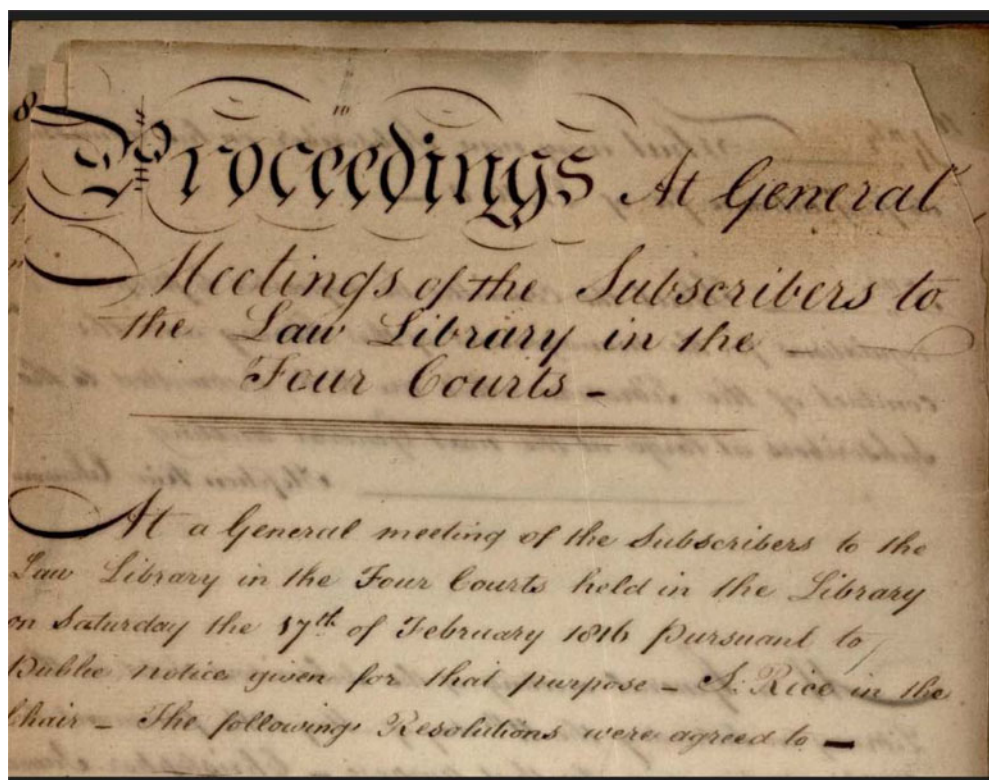 Proceedings At General
Meetings of the Subscribers to
the Law Library in the
Four Courts -
At a General meeting of the Subscribers to the
Law Library in the Four Courts held in the Library
on Saturday the 17th of February 1816 Pursuant to
Public notice given for that purpose - S. Rice in the
Chair - The following Resolutions were agreed to -